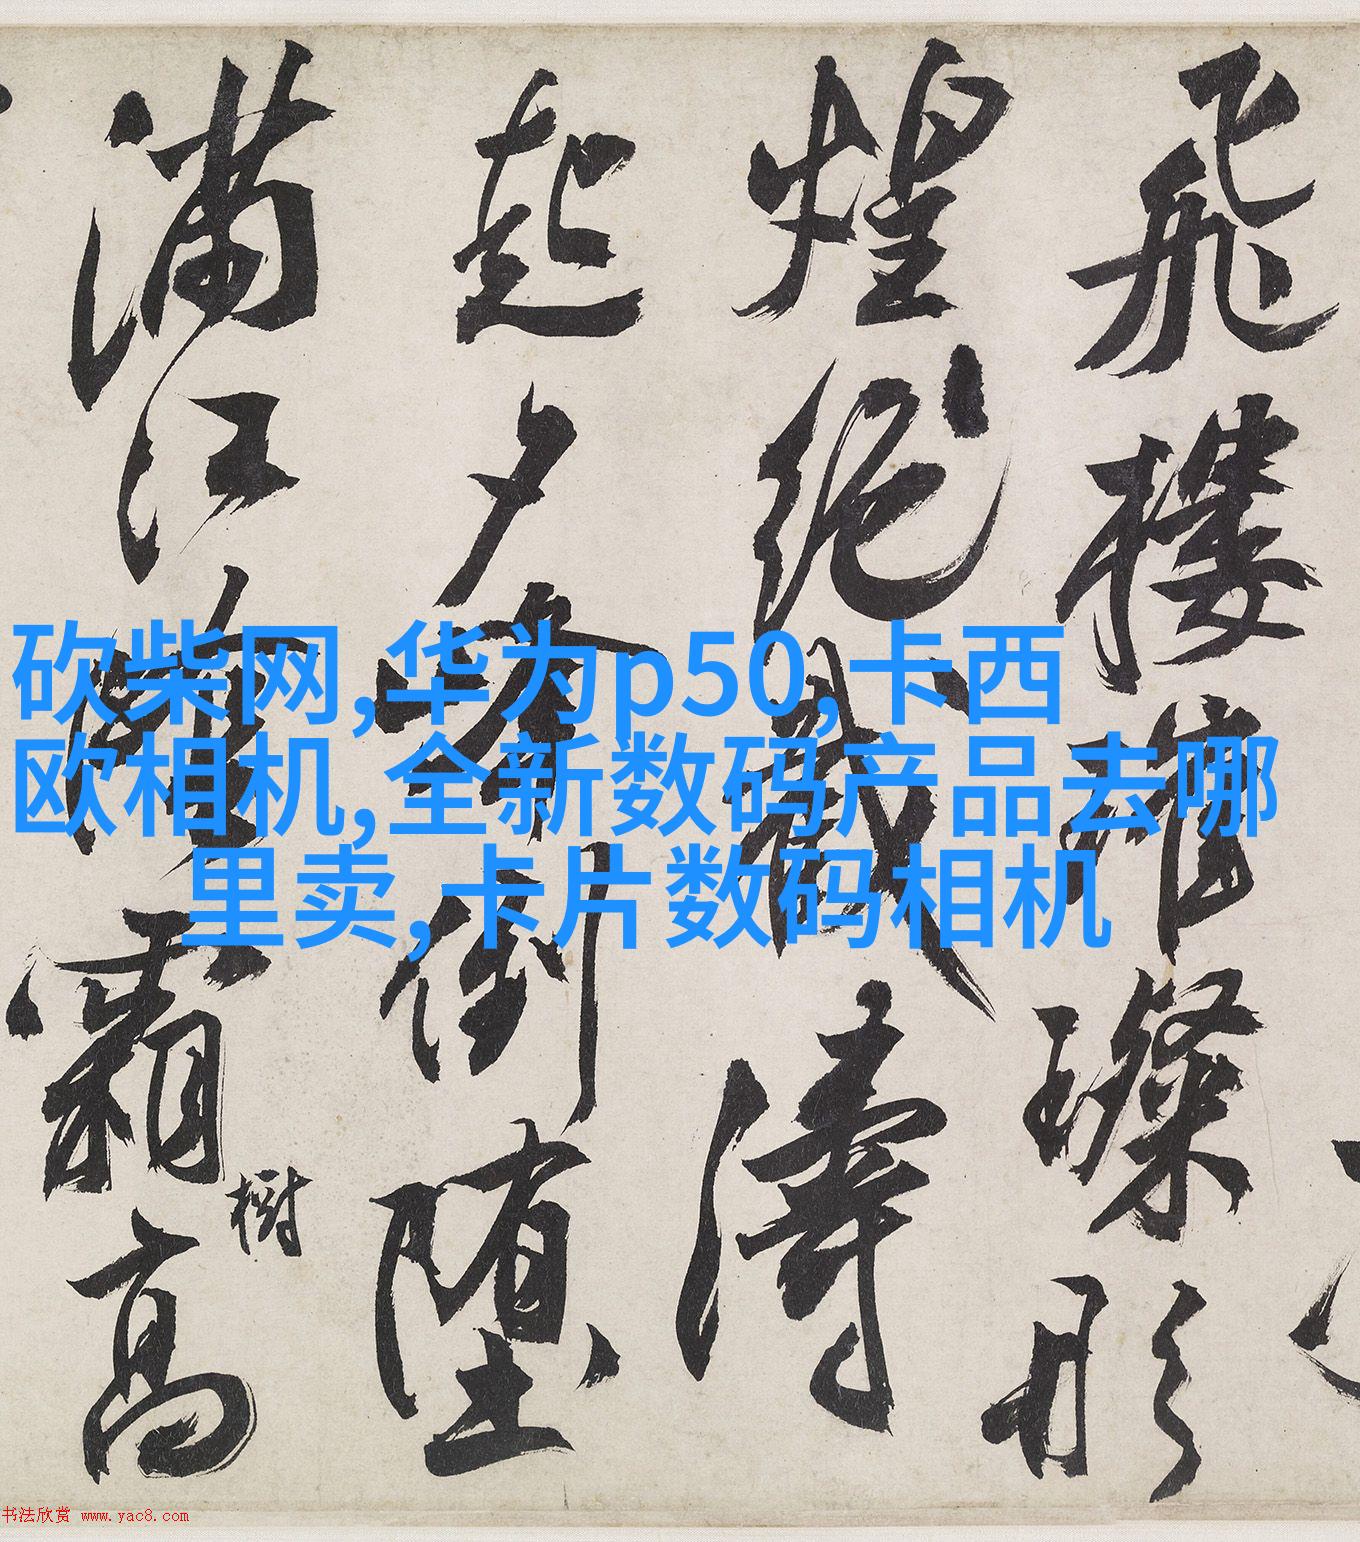 飛樓璨形
煌絶濤
起夕倒墮
滿江霜高
樹
砍柴网,华为p50,卡西
欧相机,全新数码产品去哪
里卖,卡片数码相机
书法欣赏 www.yac8.com